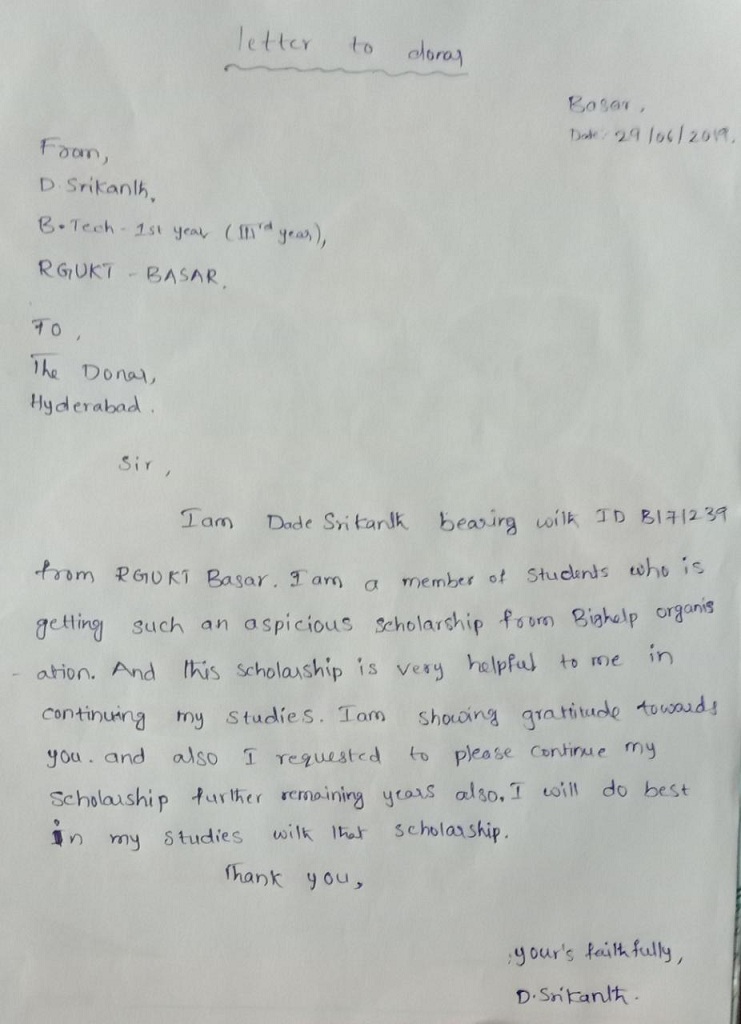 letter to donar
Basar,
Date: 29/06/2019.
From,
D. Srikanth,
B.Tech - 1st year (IIIrd year),
RGUKT - BASAR.
To,
The Donar,
Hyderabad.
Sir,
I am Dade Srikanth bearing with ID B171239
from RGUKT Basar. I am a member of Students who is
getting such an aspicious scholarship from Bighelp organis
- ation. And this scholarship is very helpful to me in
continuing my studies. I am showing gratitude towards
you. and also I requested to please continue my
Scholarship further remaining years also. I will do best
in my studies with that scholarship.
Thank you,
your's faithfully,
D. Srikanth.